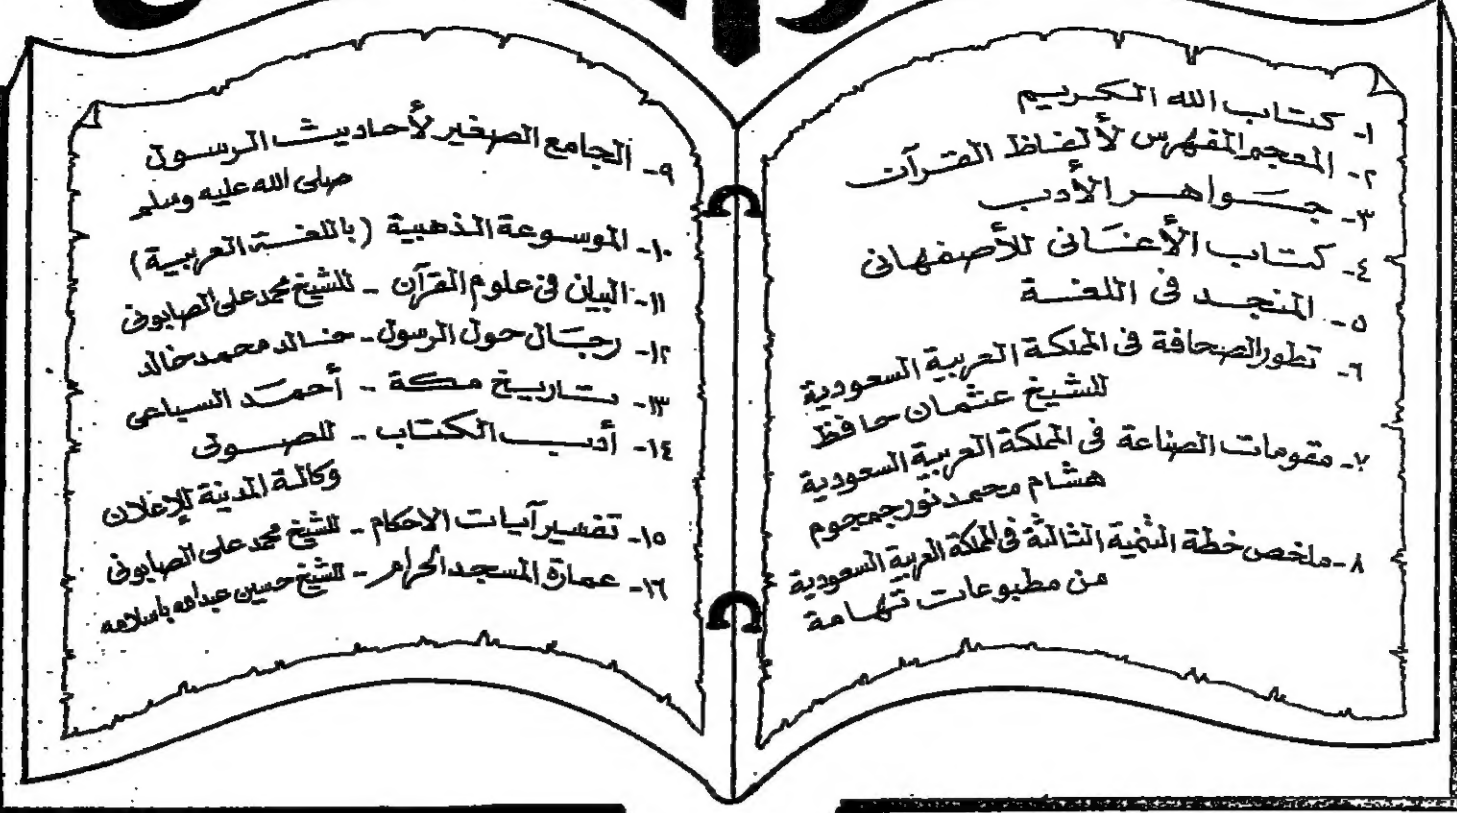 ١- كتاب الله الكريم
٢- المعجم المفهرس لألفاظ القرآن
٣- جواهر الأدب
٤- كتاب الأغانى للأصفهانى
٥- المنجد فى اللغة
٦- تطور الصحافة فى المملكة العربية السعودية
للشيخ عثمان حافظ
٧- مقومات الصناعة فى المملكة العربية السعودية
هشام محمد نور جمجوم
٨- ملخص خطة التنمية الثالثة فى المملكة العربية السعودية
من مطبوعات تهامة
٩- الجامع الصغير لأحاديث الرسول
صلى الله عليه وسلم
١٠- الموسوعة الذهبية (باللغة العربية)
١١- البيان فى علوم القرآن - للشيخ محمد على الصابونى
١٢- رجال حول الرسول - خالد محمد خالد
١٣- تاريخ مكة - أحمد السباعى
١٤- أدب الكتاب - للصولى
وكالة المدينة للإعلان
١٥- تفسير آيات الاحكام - للشيخ محمد على الصابونى
١٦- عمارة المسجد الحرام - للشيخ حسين عبدالله باسلامه